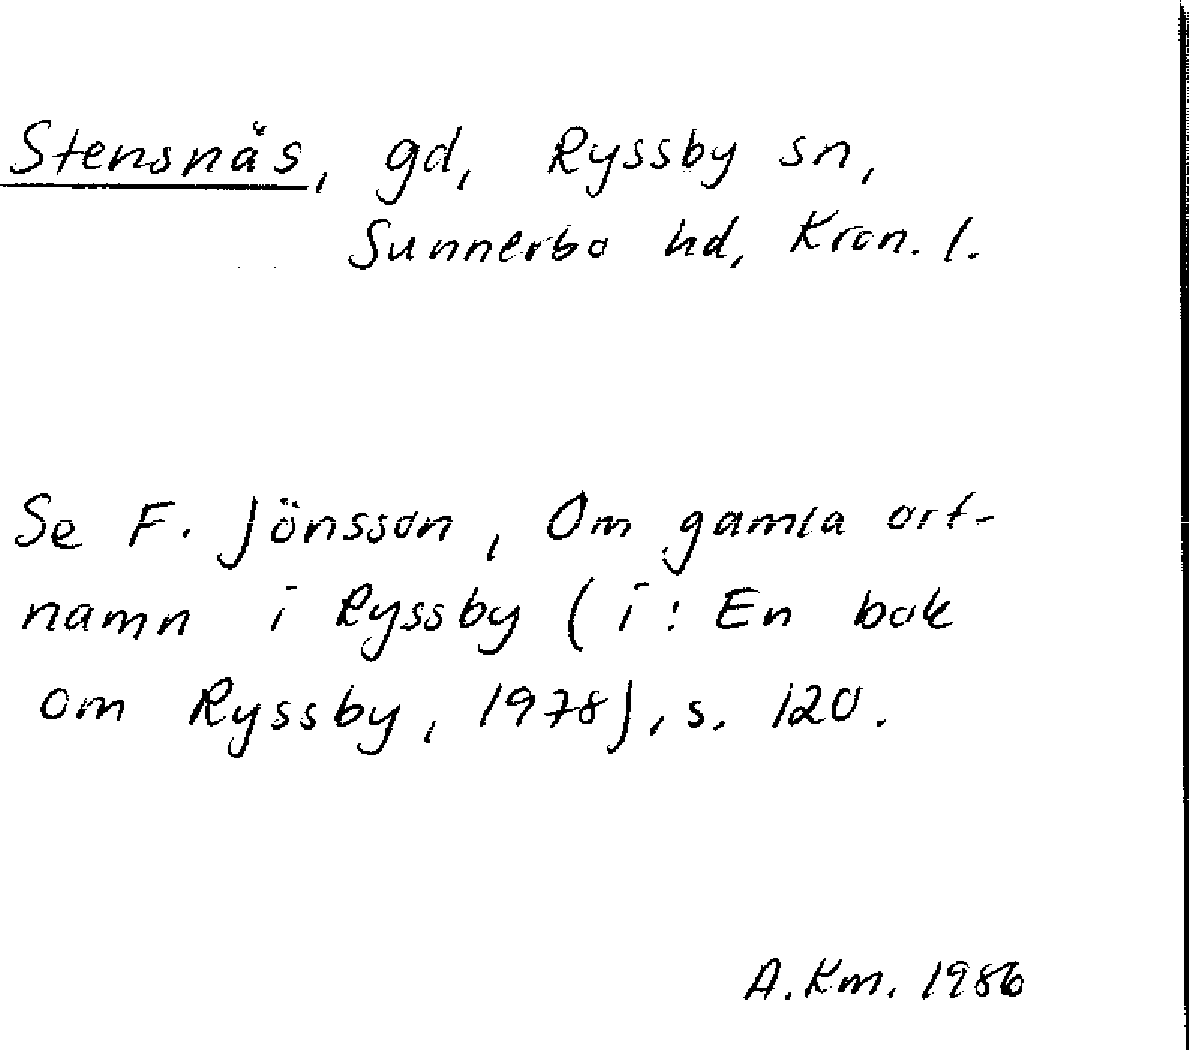 Stensnäs, gd, Ryssby sn,
Sunnerbo hd, Kron. l.
Se F. Jönsson, Om gamla ort-
namn i Ryssby (i: En bok
om Ryssby, 1978), s. 120.
A.Km. 1986